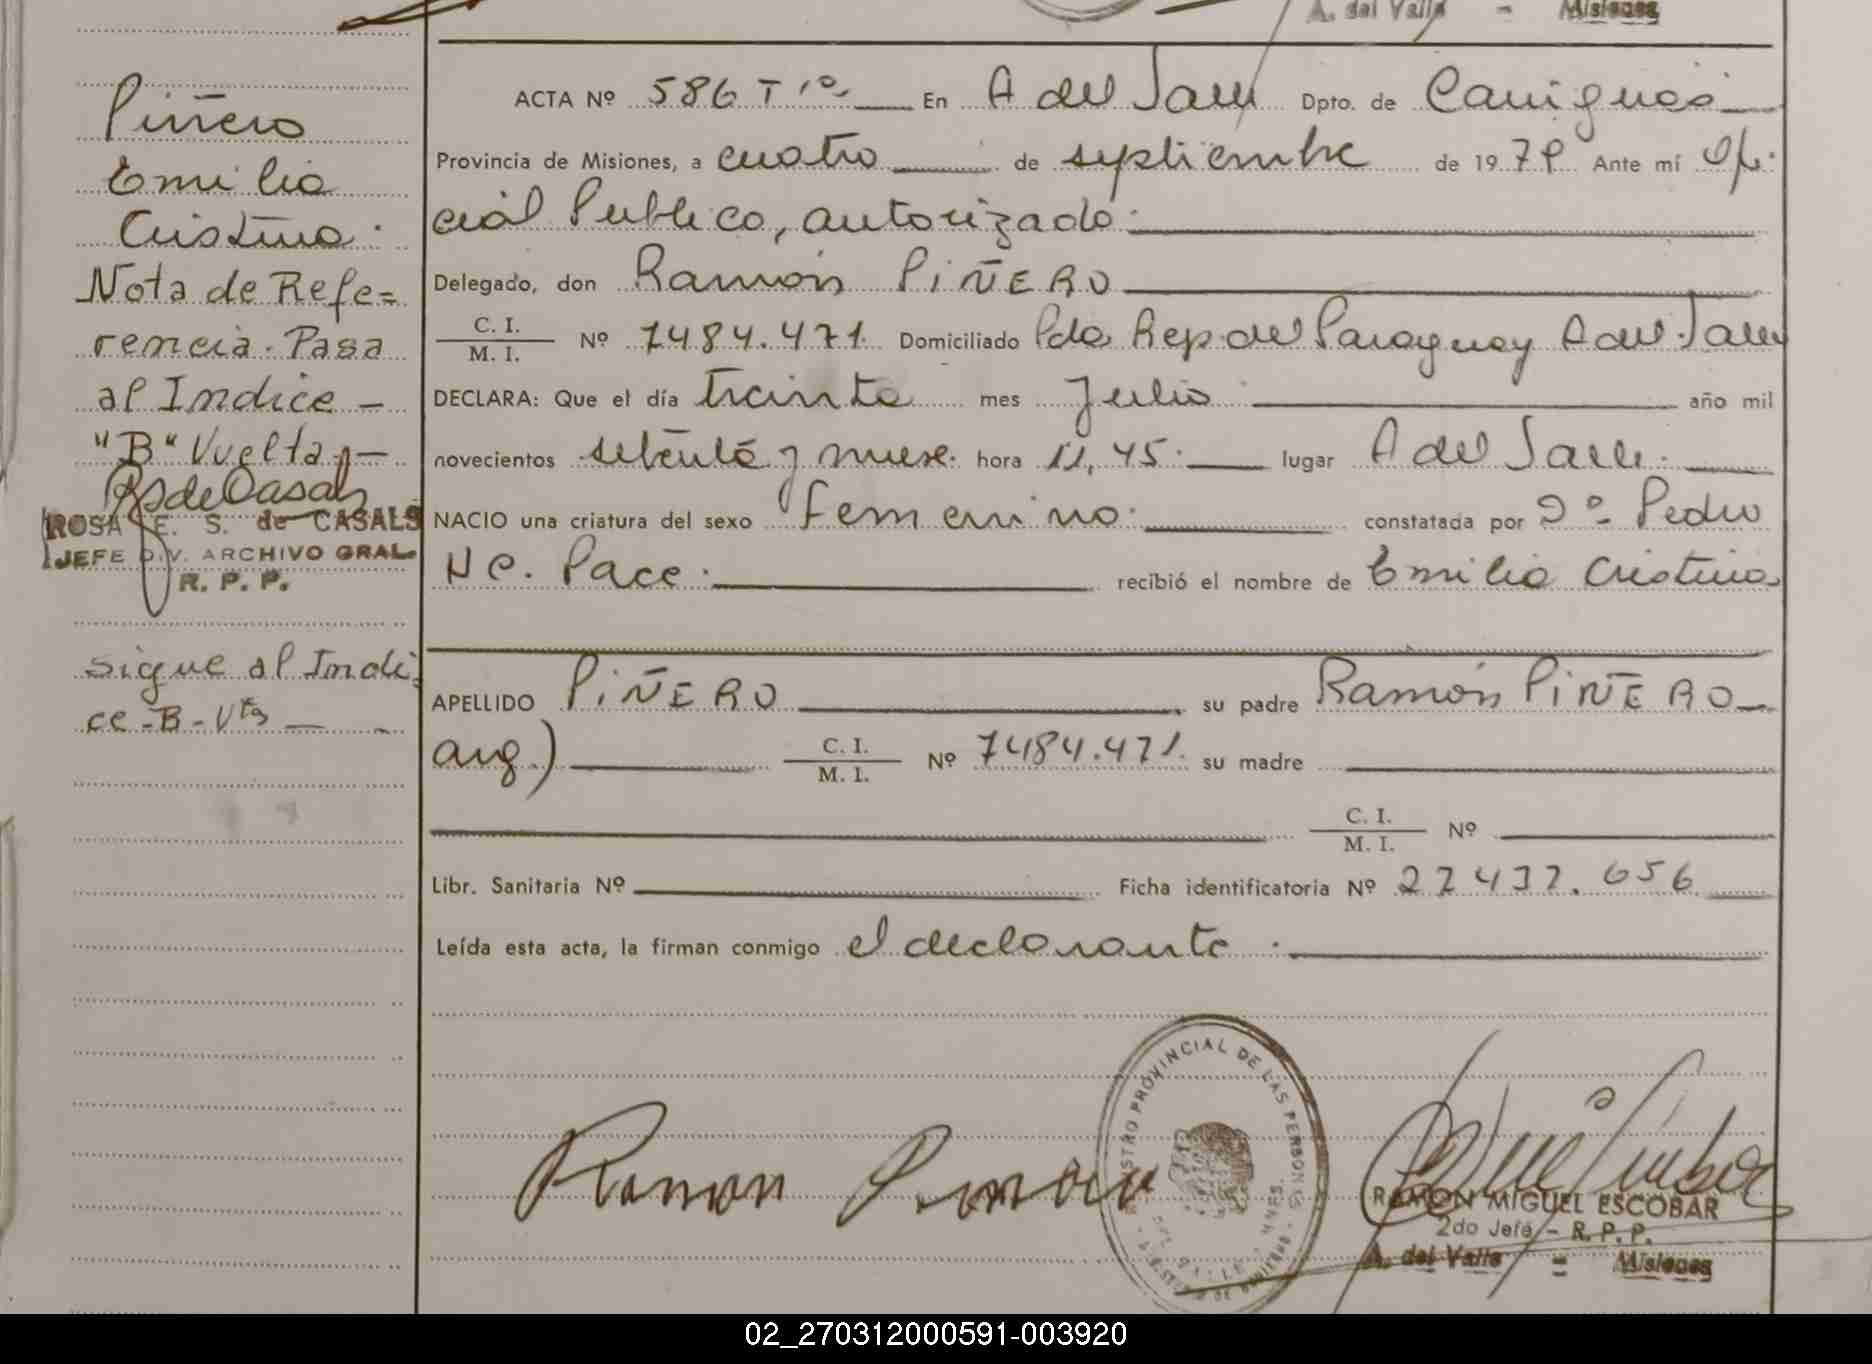 A. del Valle - Misiones
Piñero
Emilia
Cristina.
Nota de Refe=
rencia. Pasa
al Indice -
"B" Vuelta -
RSdeCasals
ROSA E. S. de CASALS
JEFE DIV. ARCHIVO GRAL.
R. P. P.
sigue al Indi
ce - B - Vta
ACTA Nº 586 T 1º En A del Valle Dpto. de Cainguás
Provincia de Misiones, a cuatro de septiembre de 1979 Ante mí Ofi.
cial Publico, autorizado.
Delegado, don Ramón PiÑERO
C. I. / M. I. Nº 7484.471. Domiciliado Pdo Rep. del Paraguay A del Valle
DECLARA: Que el día treinta mes Julio año mil
novecientos setenta y nueve. hora 11,45. lugar A del Valle.
NACIO una criatura del sexo femenino. constatada por Dº Pedro
Nc. Pace. recibió el nombre de Emilia Cristina
APELLIDO PiÑERO su padre Ramón PiÑERO
arg.) C. I. / M. I. Nº 7484.471. su madre
C. I. / M. I. Nº
Libr. Sanitaria Nº Ficha identificatoria Nº 27437.656
Leída esta acta, la firman conmigo el declarante.
Ramon
REGISTRO PROVINCIAL DE LAS PERSONAS
RAMON MIGUEL ESCOBAR
2do Jefe - R. P. P.
A. del Valle = Misiones
02_270312000591-003920